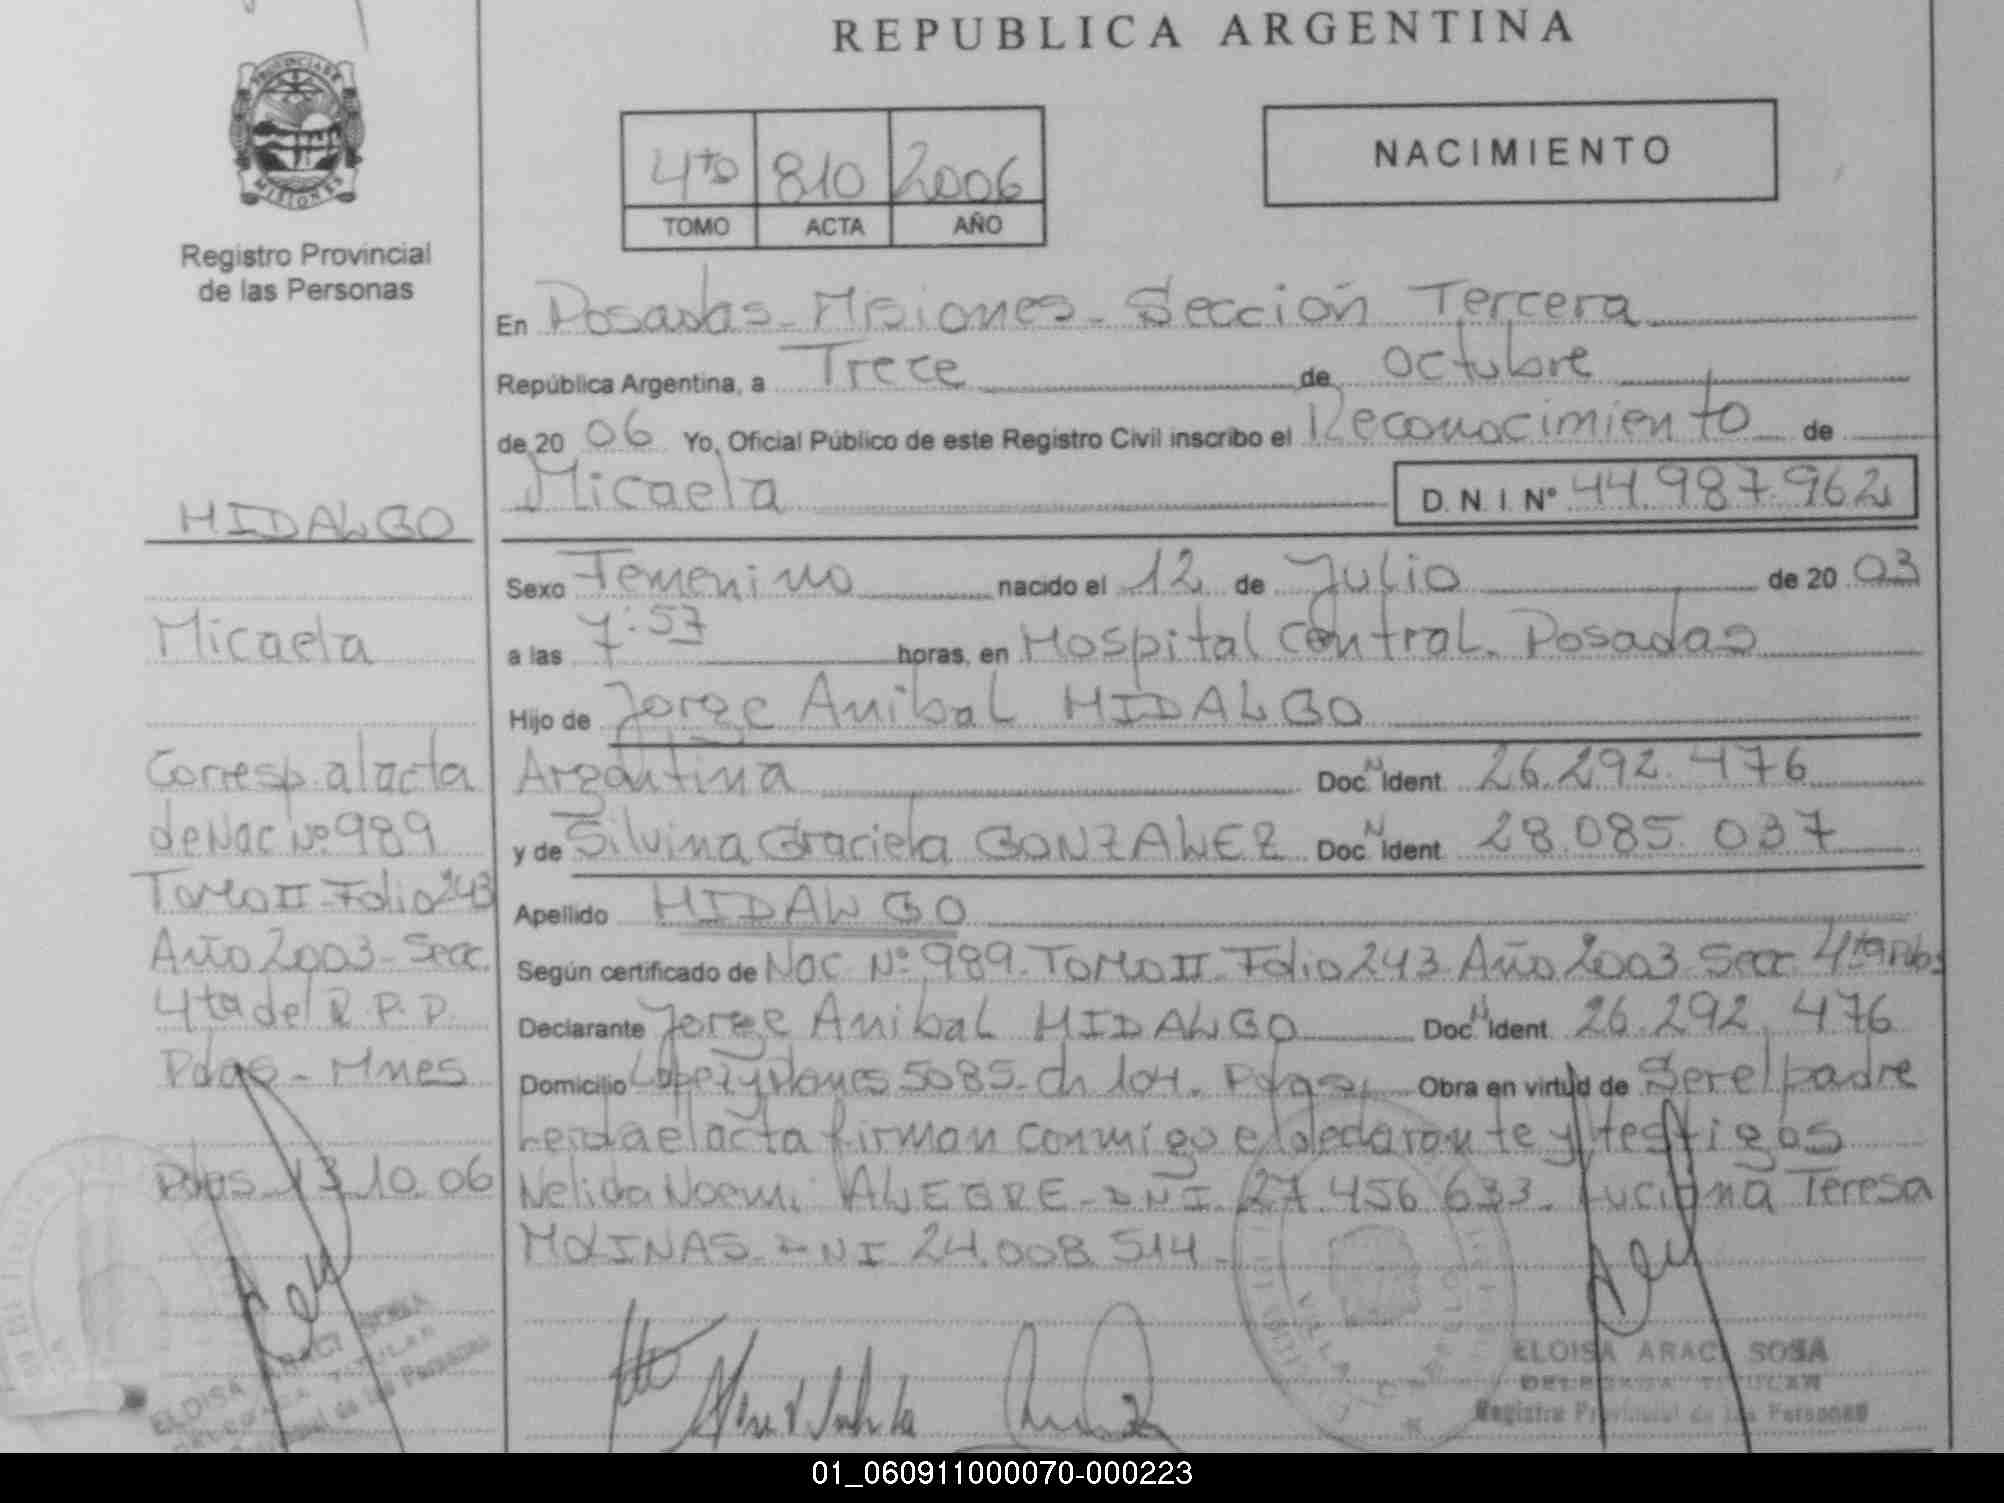 REPUBLICA ARGENTINA
PROVINCIA DE
MISIONES
Registro Provincial
de las Personas
4to 810 2006
TOMO ACTA AÑO
NACIMIENTO
En Posadas - Misiones - Sección Tercera
República Argentina, a Trece de octubre
de 20 06 Yo, Oficial Público de este Registro Civil inscribo el Reconocimiento de
Micaela D. N. I. N° 44.987.962
HIDALGO
Micaela
Corresp. al acta
de Nac N° 989
Tomo II - Folio 243
Año 2003 - Secc.
4ta del R.P.P.
Pdas - Mnes
Pdas 13.10.06
Sexo Femenino nacido el 12 de Julio de 20 03
a las 7:57 horas, en Hospital Central. Posadas
Hijo de Jorge Anibal HIDALGO
Argentina Doc. N Ident. 26.292.476
y de Silvina Graciela GONZALEZ Doc. N Ident. 28.085.037
Apellido HIDALGO
Según certificado de Nac N° 989 - Tomo II - Folio 243 Año 2003 Secc. 4ta Pdas
Declarante Jorge Anibal HIDALGO Doc. N Ident. 26.292.476
Domicilio Lopez y Planes 5085 - ch 104 - Pdas, Obra en virtud de Ser el padre
Leida el acta firman conmigo el declarante y testigos
Nelida Noemi ALEGRE - DNI 27.456.633 - Luciana Teresa
MOLINAS - DNI 24.008.514 -
ELOISA ARACI SOSA
DELEGADA TITULAR
Registro Provincial de las Personas
ELOISA ARACI SOSA
DELEGADA TITULAR
de las Personas
VILLA
01_060911000070-000223